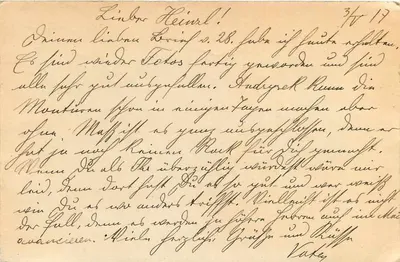 Lieber Heinzl! 3/V 17
Deinen lieben Brief v. 28. habe ich heute erhalten.
Es sind wieder Fotos fertig geworden und sind
alle sehr gut ausgefallen. kann die
Monturen schon in einigen Tagen machen aber
ohne Maß ist es ganz ausgeschlossen, denn er
hat ja noch keinen Rock für Dich gemacht.
Wenn Du als überzählig würdest wäre mir
leid, denn dort hast Du es so gut und wer weiß
wie Du es wo anders triffst. Vielleicht ist es nicht
der Fall, denn es werden ja auch im Mai
avancieren. Viele herzliche Grüße und Küsse
Vater